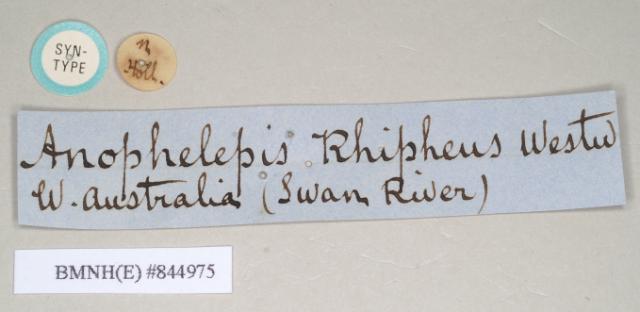 SYN-
TYPE
Anophelepis Rhipheus Westw
W. Australia (Swan River)
BMNH(E) #844975